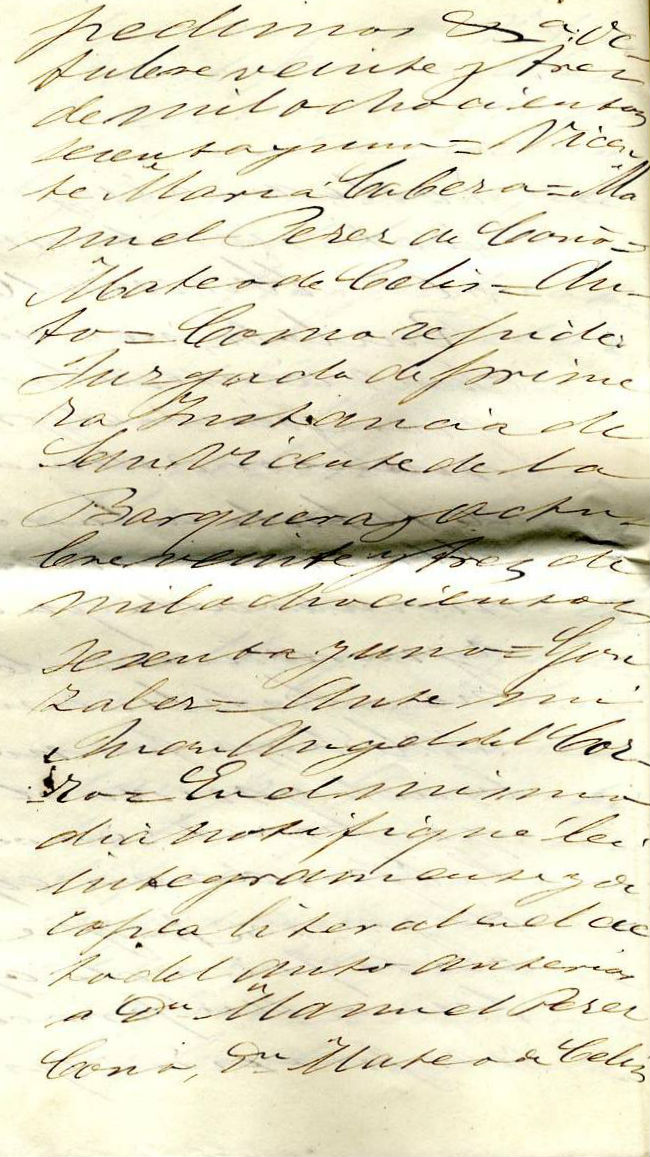 pedimos &ª. Oc
tubre veinte y tres
de mil ochocientos
sesenta y uno = Vicen
te Maria Cabeza = Ma
nuel Perez de Cono =
Mateo de Celis = Au-
to = Como se pide
Juzgado de prime
ra Instancia de
San Vicente de la
Barquera y Octu-
bre veinte y tres de
mil ochocientos
sesenta y uno = Gon
zalez = Ante mi
Juan Angel del Cor-
ro = En el mismo
dia notifiqué lei
integramente y di
copia literal en el ac
to del auto anterior
a Dn Manuel Perez
Cono, Dn Mateo de Celis